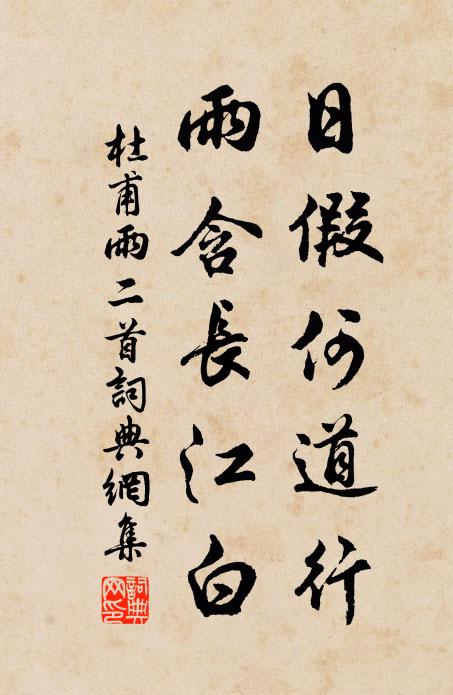 日假何道行
雨含長江白
杜甫雨二首詞典網集
詞典網印